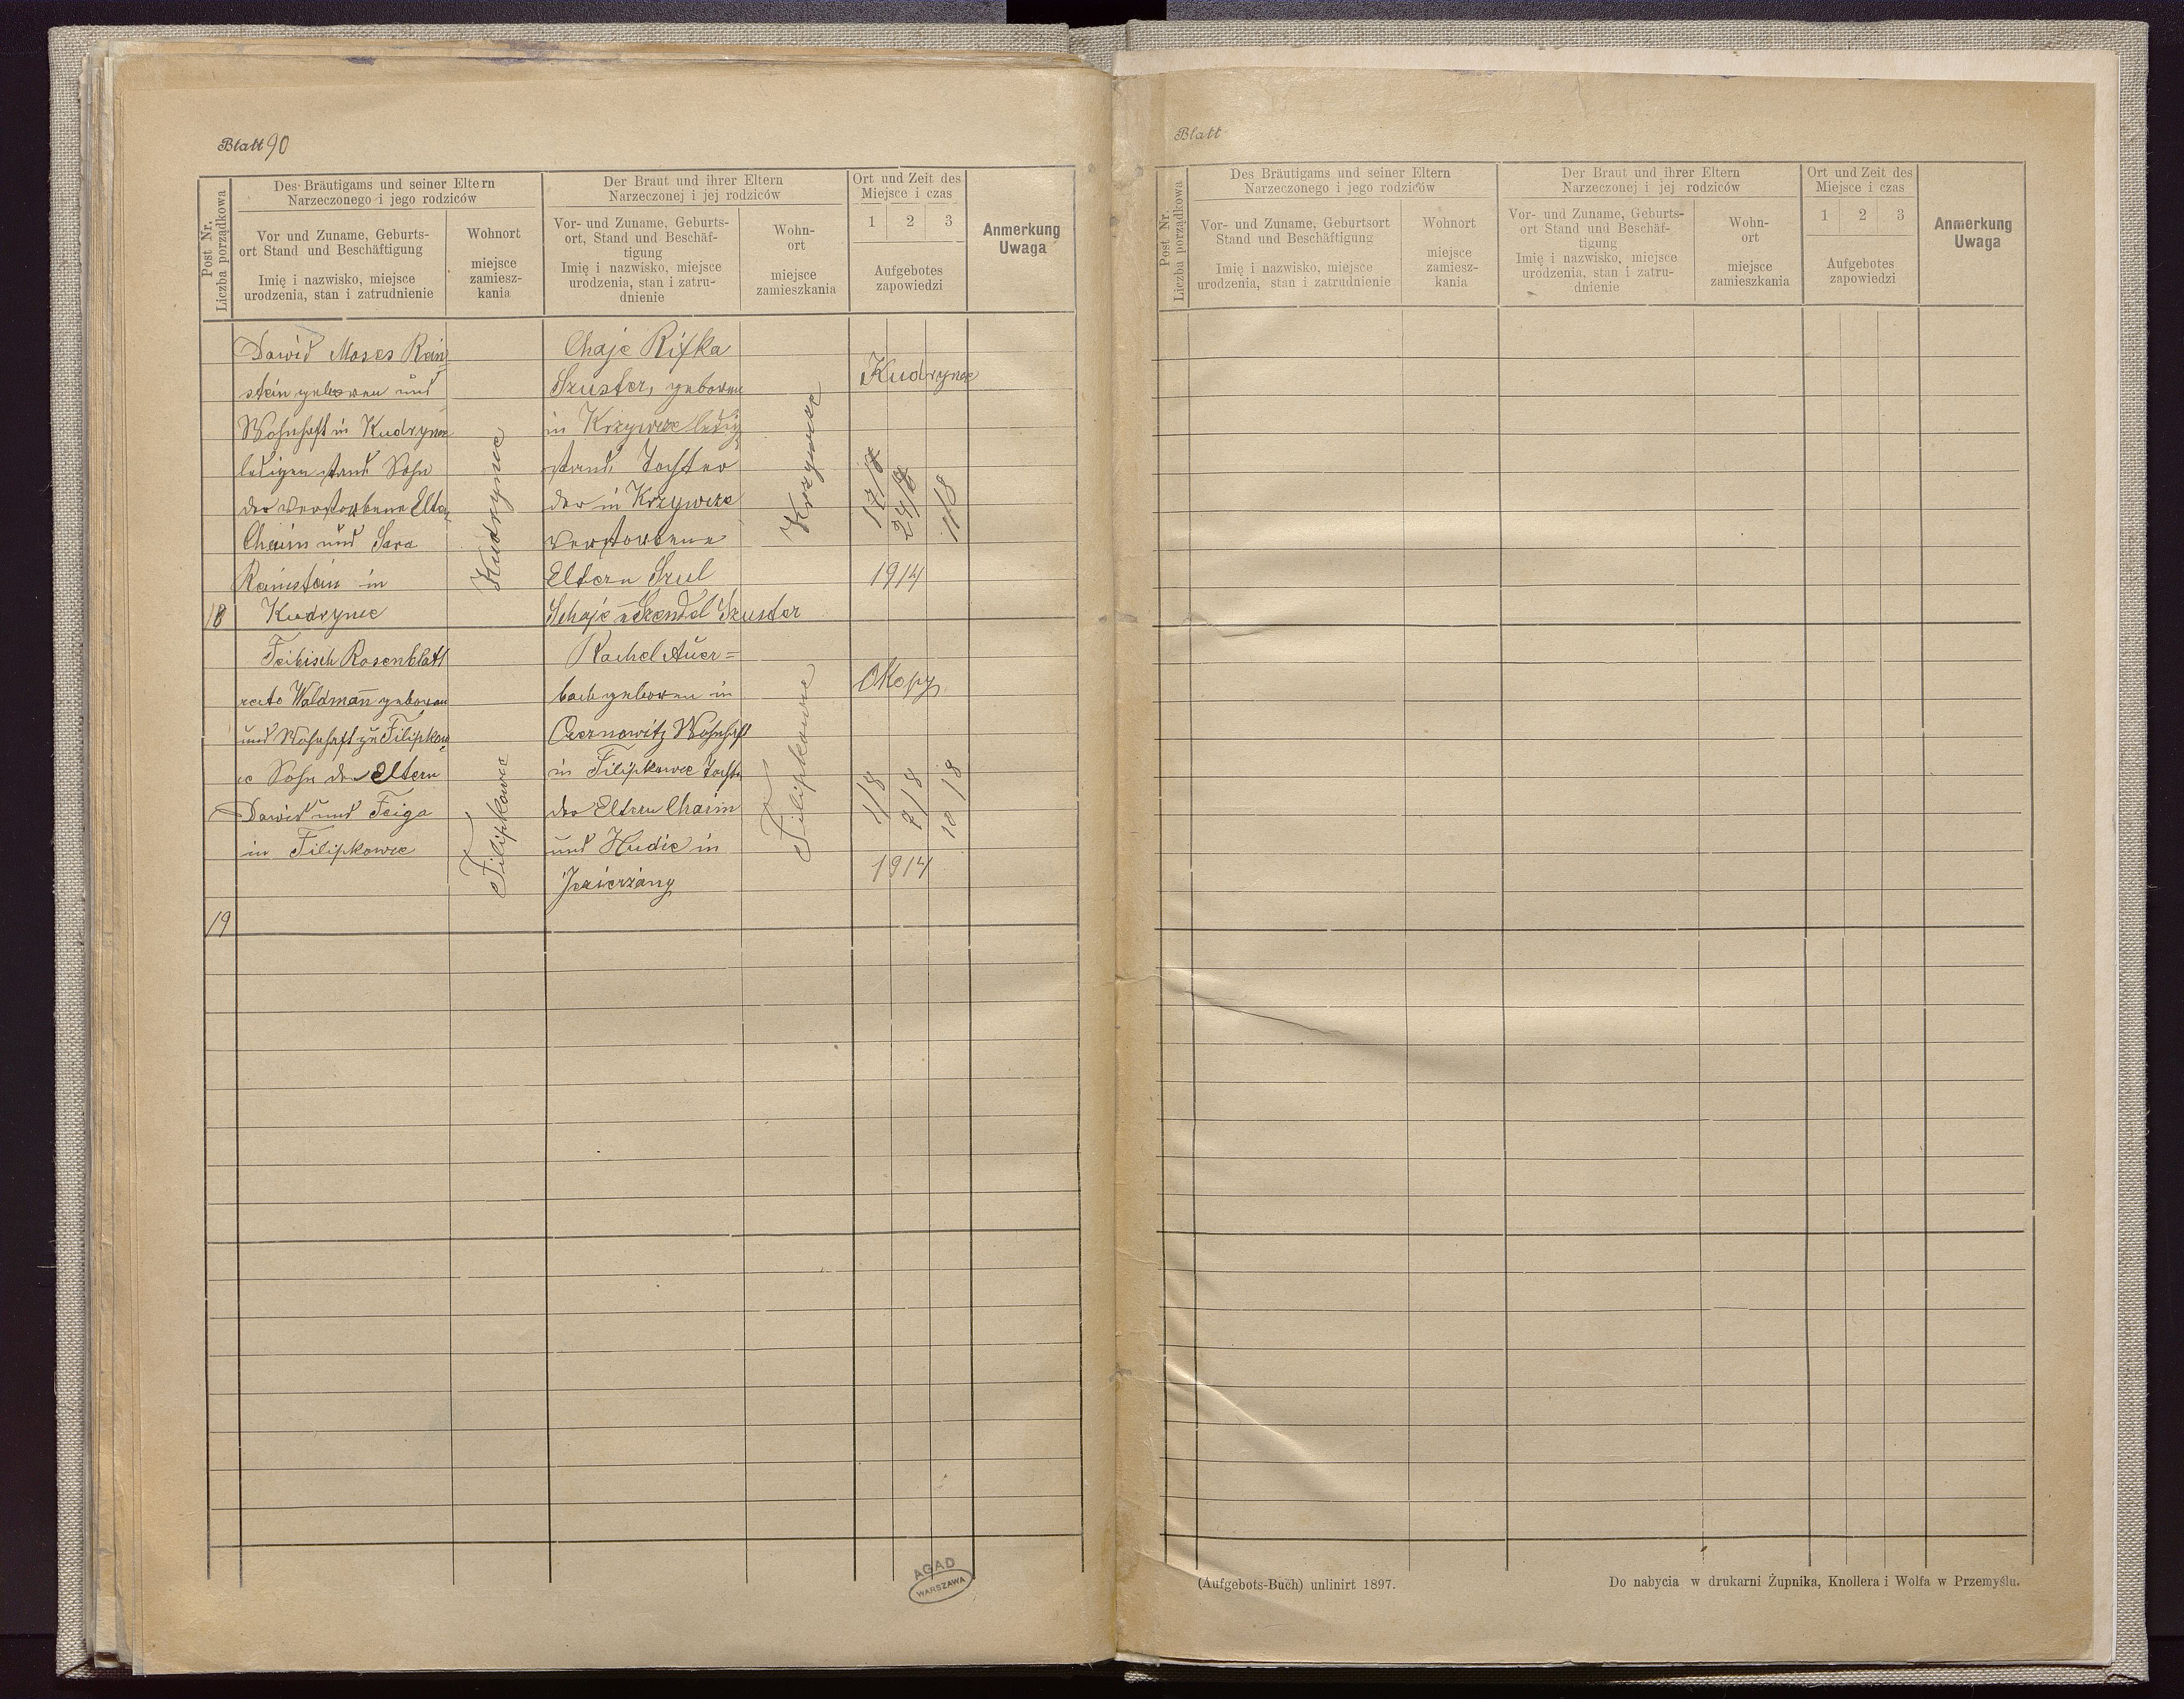 Blatt 90
Post Nr.
Liczba porządkowa
Des Bräutigams und seiner Eltern
Narzeczonego i jego rodziców
Vor und Zuname, Geburts-
ort Stand und Beschäftigung
Imię i nazwisko, miejsce
urodzenia, stan i zatrudnienie
Wohnort
miejsce
zamiesz-
kania
Der Braut und ihrer Eltern
Narzeczonej i jej rodziców
Vor- und Zuname, Geburts-
ort, Stand und Beschäf-
tigung
Imię i nazwisko, miejsce
urodzenia, stan i zatru-
dnienie
Wohn-
ort
miejsce
zamieszkania
Ort und Zeit des
Miejsce i czas
1 2 3
Aufgebotes
zapowiedzi
Anmerkung
Uwaga
18
Dawid Moses Rein
stein geboren und
Wohnhaft in Kudrynce
ledigen stand Sohn
der verstorbene Eltern
Chaim und Sara
Reinstein in
Kudrynce
Kudrynce
Chaje Rifka
Szuster, geboren
in Krzywcze ledig
stand, Tochter
der in Krzywcze
verstorbene
Eltern Szul
Schaje u Szendel Szuster
Krzywcze
Kudrynce
17/8
24/8
1/8
1914
19
Feibisch Rosenblatt
recte Waldmañ geboren
und Wohnhaft zu Filipkow
ce Sohn der Eltern
Dawid und Feiga
in Filipkowce
Filipkowce
Rachel Auer=
bach geboren in
Czernowitz Wohnhaft
in Filipkowce Tochter
der Eltern Chaim
und Hudie in
Jezierzany
Filipkowce
Okopy
1/8
8/8
10/8
1914
AGAD
WARSZAWA
Blatt
Post Nr.
Liczba porządkowa
Des Bräutigams und seiner Eltern
Narzeczonego i jego rodziców
Vor- und Zuname, Geburtsort
Stand und Beschäftigung
Imię i nazwisko, miejsce
urodzenia, stan i zatrudnienie
Wohnort
miejsce
zamiesz-
kania
Der Braut und ihrer Eltern
Narzeczonej i jej rodziców
Vor- und Zuname, Geburts-
ort Stand und Beschäf-
tigung
Imię i nazwisko, miejsce
urodzenia, stan i zatru-
dnienie
Wohn-
ort
miejsce
zamieszkania
Ort und Zeit des
Miejsce i czas
1 2 3
Aufgebotes
zapowiedzi
Anmerkung
Uwaga
(Aufgebots-Buch) unlinirt 1897.
Do nabycia w drukarni Żupnika, Knollera i Wolfa w Przemyślu.